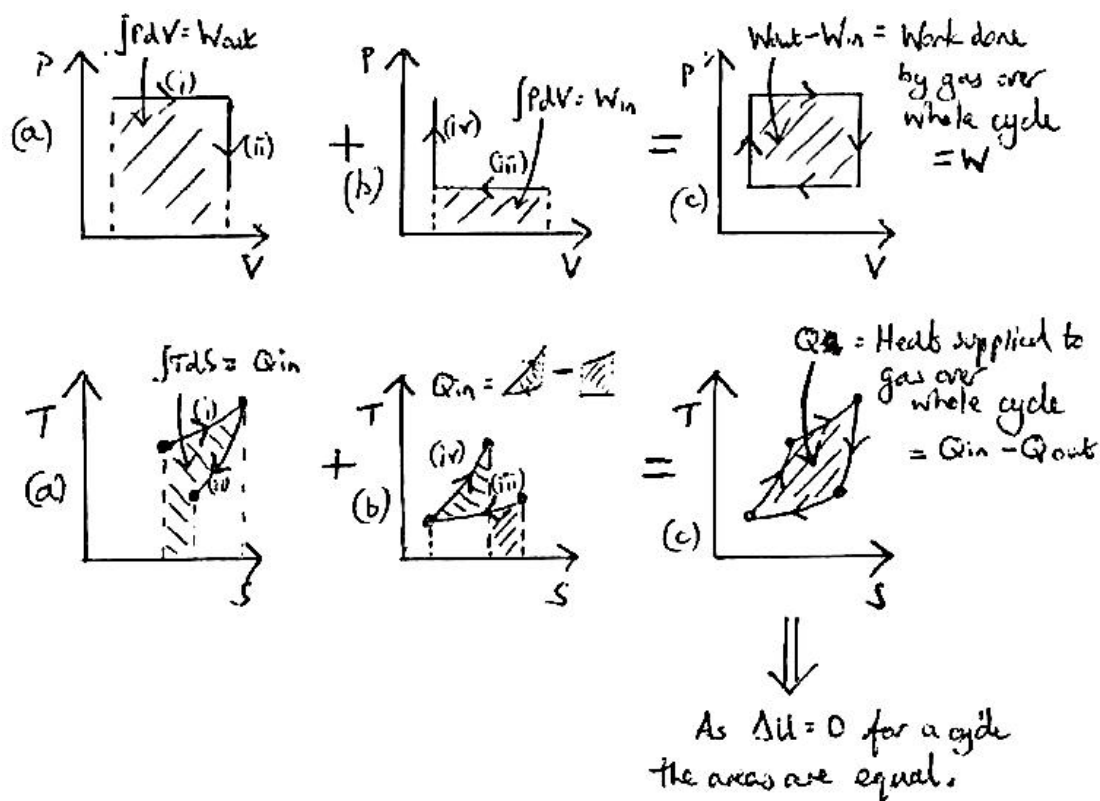 ∫PdV = Wout
P
(i)
(ii)
(a)
V
+
P
(iv)
∫PdV = Win
(iii)
(b)
V
=
Wout-Win = Work done
by gas over
whole cycle
= W
P
(c)
V
∫TdS = Qin
T
(i)
(ii)
(a)
S
+
Qin = -
T
(iv)
(iii)
(b)
S
=
Q = Heat supplied to
gas over
whole cycle
= Qin - Qout
T
(c)
S
⇓
As ΔU = 0 for a cycle
the areas are equal.